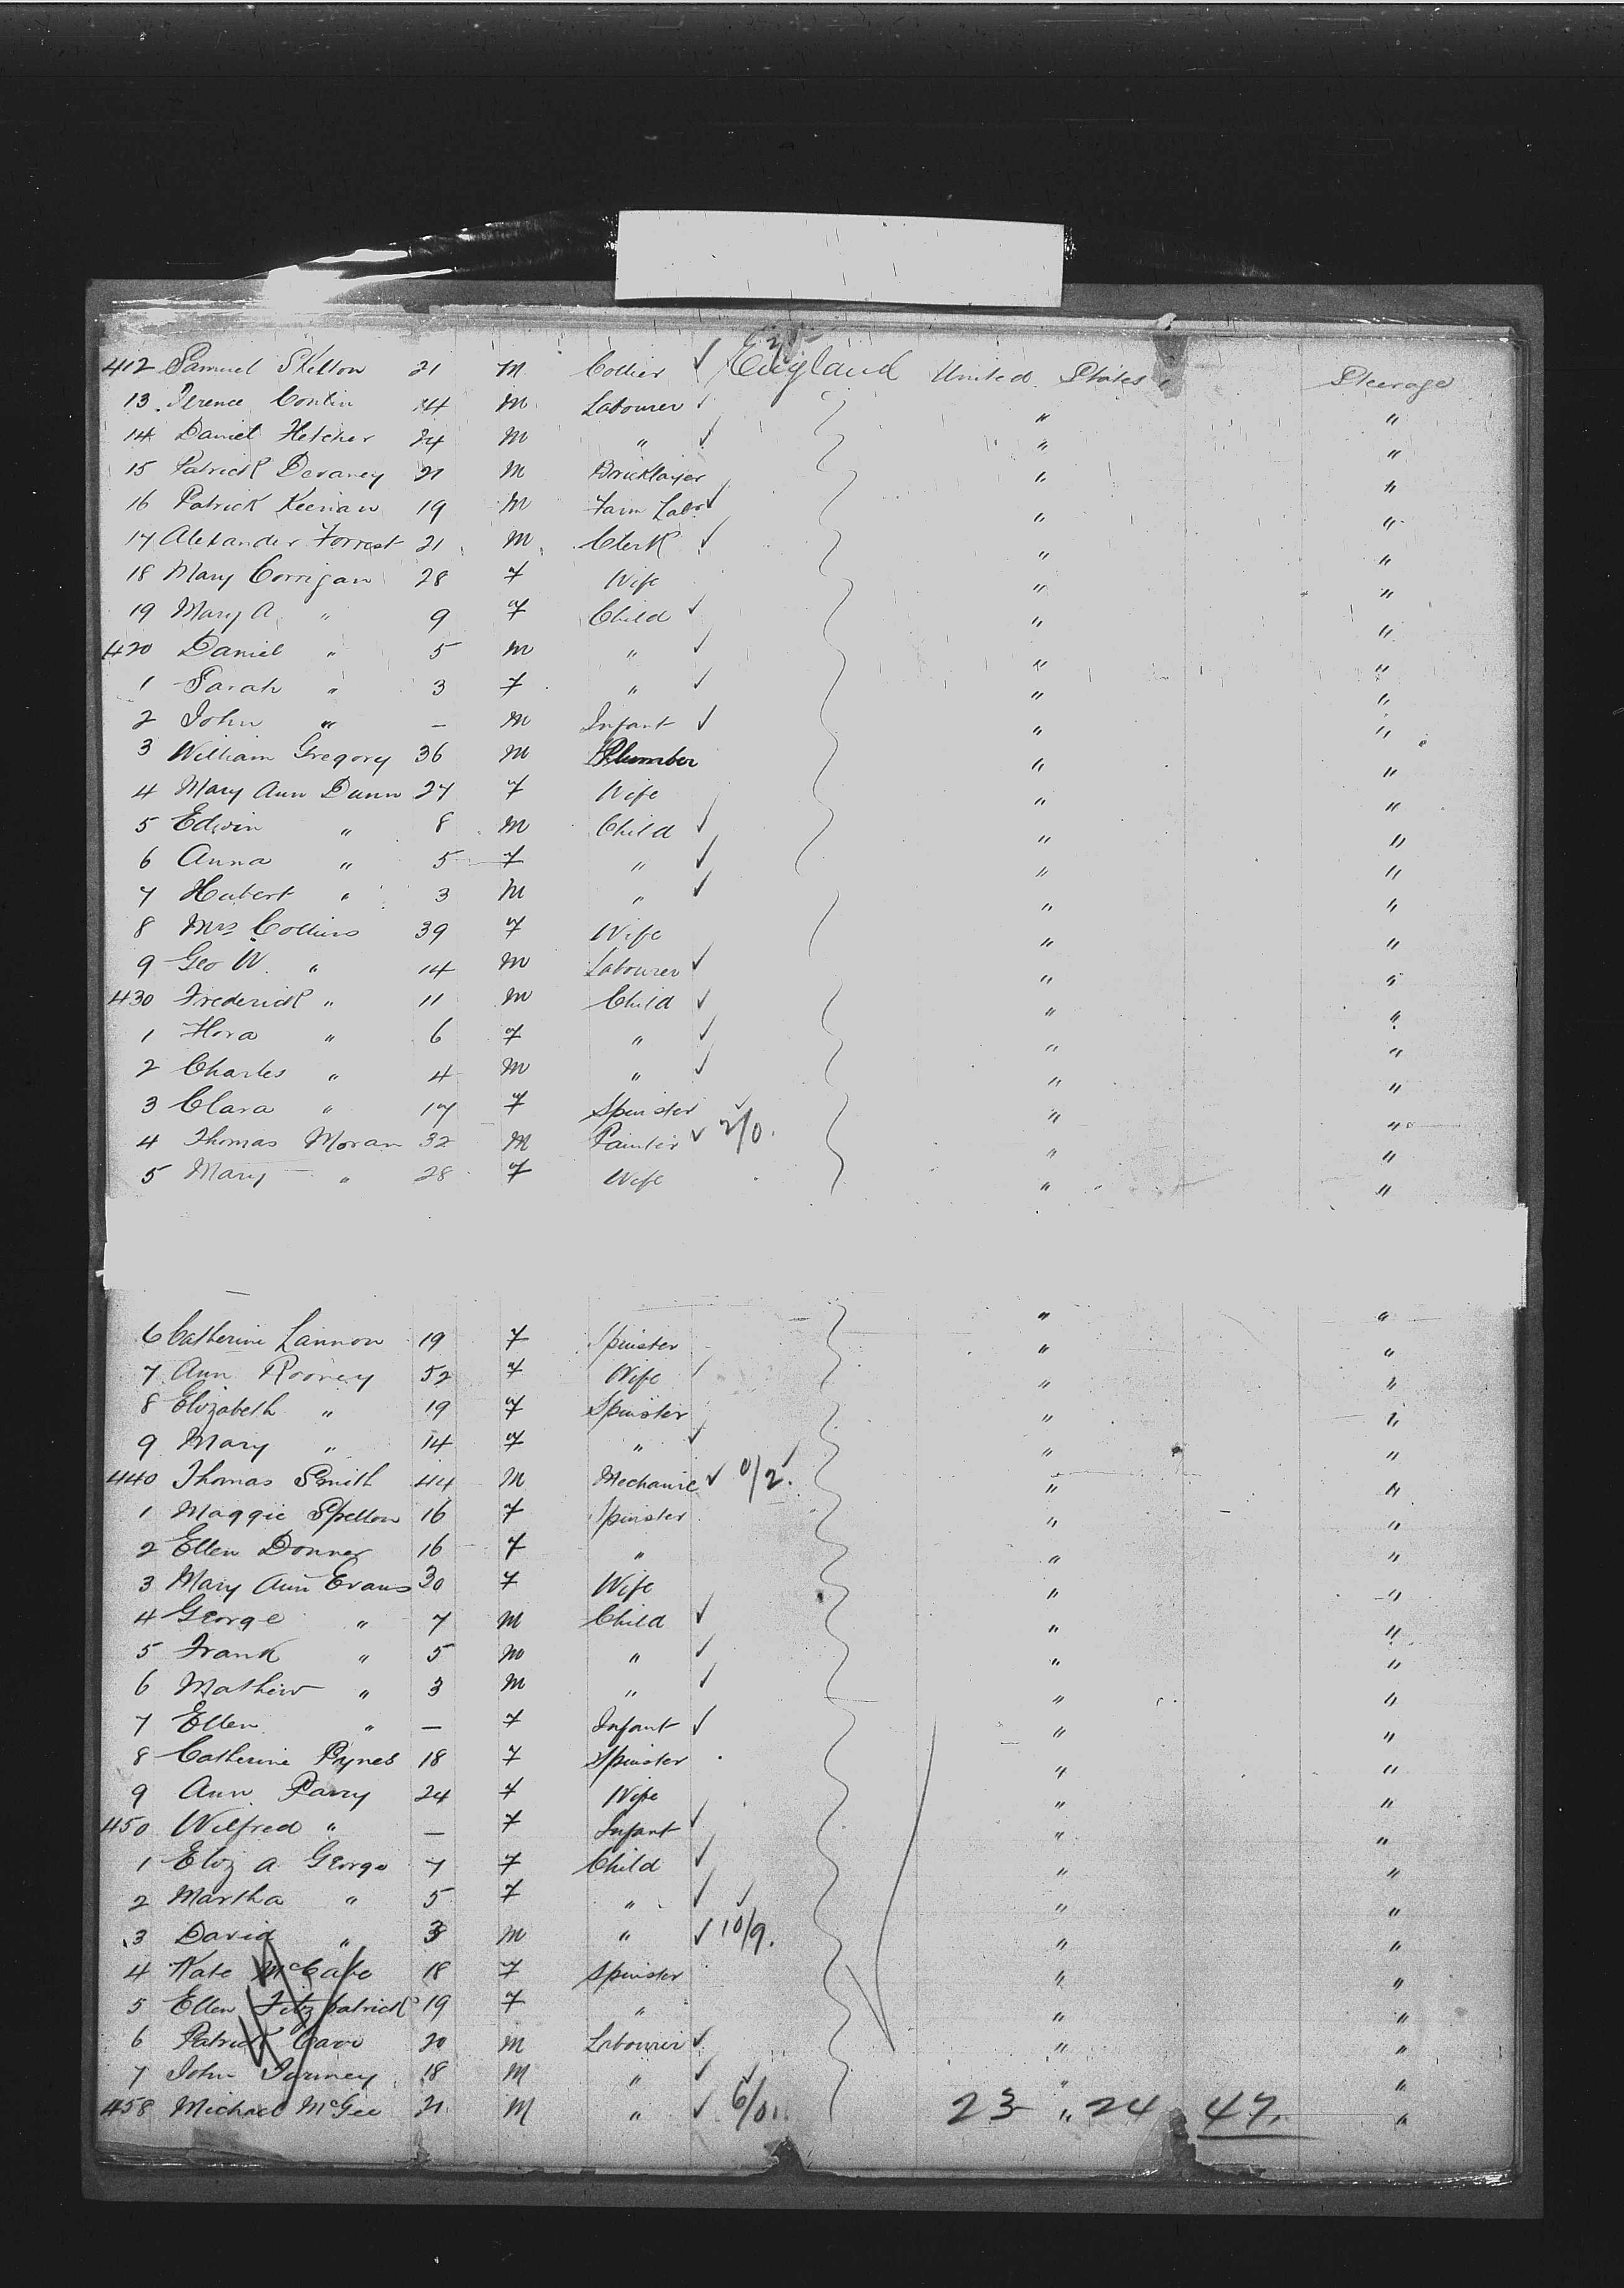 412 Samuel Skelton 21 M Collier ✓ England United States Steerage
13 Terence Contin 24 M Labourer ✓ " "
14 Daniel Fletcher 24 M " ✓ " "
15 Patrick Devaney 21 M Bricklayer ✓ " "
16 Patrick Keenan 19 M Farm Labr ✓ " "
17 Alexander Forrest 21 M Clerk ✓ " "
18 Mary Corrigan 28 F Wife " "
19 Mary A " 9 F Child ✓ " "
420 Daniel " 5 M " ✓ " "
1 Sarah " 3 F " ✓ " "
2 John " — M Infant ✓ " "
3 William Gregory 36 M Plumber " "
4 Mary Ann Dunn 27 F Wife " "
5 Edwin " 8 M Child ✓ " "
6 Anna " 5 F " ✓ " "
7 Hubert " 3 M " ✓ " "
8 Mrs Collins 39 F Wife " "
9 Geo W. " 14 M Labourer ✓ " "
430 Frederick " 11 M Child ✓ " "
1 Flora " 6 F " ✓ " "
2 Charles " 4 M " ✓ " "
3 Clara " 17 F Spinster ✓ " "
4 Thomas Moran 32 M Painter ✓ 2/0. " "
5 Mary " 28 F Wife " "
6 Catherine Lannon 19 F Spinster " "
7 Ann Rooney 52 F Wife ✓ " "
8 Elizabeth " 19 F Spinster " "
9 Mary " 14 F " ✓ " "
440 Thomas Smith 44 M Mechanic ✓ 0/2. " "
1 Maggie Spellon 16 F Spinster " "
2 Ellen Donner 16 F " " "
3 Mary Ann Evans 30 F Wife " "
4 George " 7 M Child ✓ " "
5 Frank " 5 M " ✓ " "
6 Mathew " 3 M " ✓ " "
7 Ellen " — F Infant ✓ " "
8 Catherine 18 F Spinster " "
9 Ann Parry 24 F Wife " "
450 Wilfred " — F Infant ✓ " "
1 Eliz A George 7 F Child ✓ " "
2 Martha " 5 F " ✓ ✓ " "
3 David " 3 M " ✓ 10/9. " "
4 Kate McCabe 18 F Spinster " "
5 Ellen Fitzpatrick 19 F " " "
6 Patrick Carr 20 M Labourer ✓ " "
7 John 18 M " ✓ ✓ " "
458 Michael McGee 21 M " ✓ 6/01. 23 " 24 47. "